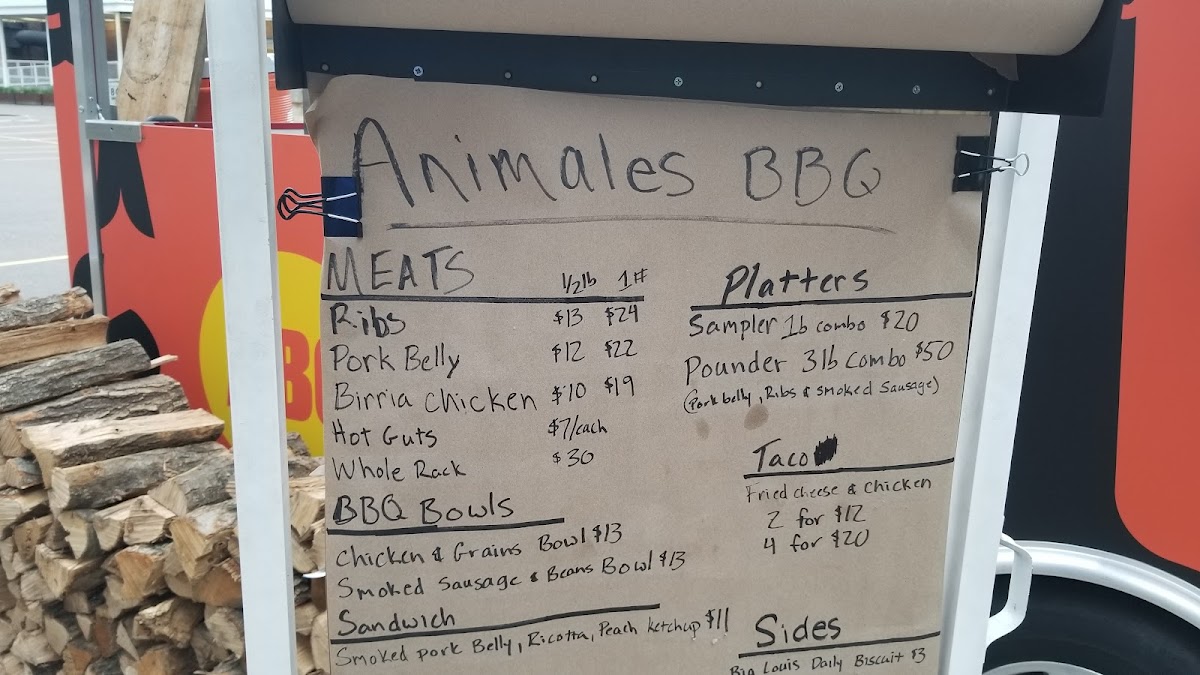 Animales BBQ
MEATS 1/2lb 1#
Ribs $13 $24
Pork Belly $12 $22
Birria chicken $10 $19
Hot Guts $7/each
Whole Rack $30
BBQ Bowls
Chicken & Grains Bowl $13
Smoked Sausage & Beans Bowl $13
Sandwich
Smoked Pork Belly, Ricotta, Peach ketchup $11
Platters
Sampler 1b combo $20
Pounder 3lb combo $50
(Pork belly, Ribs & smoked Sausage)
Taco
Fried cheese & chicken
2 for $12
4 for $20
Sides
Big Louis Daily Biscuit $3